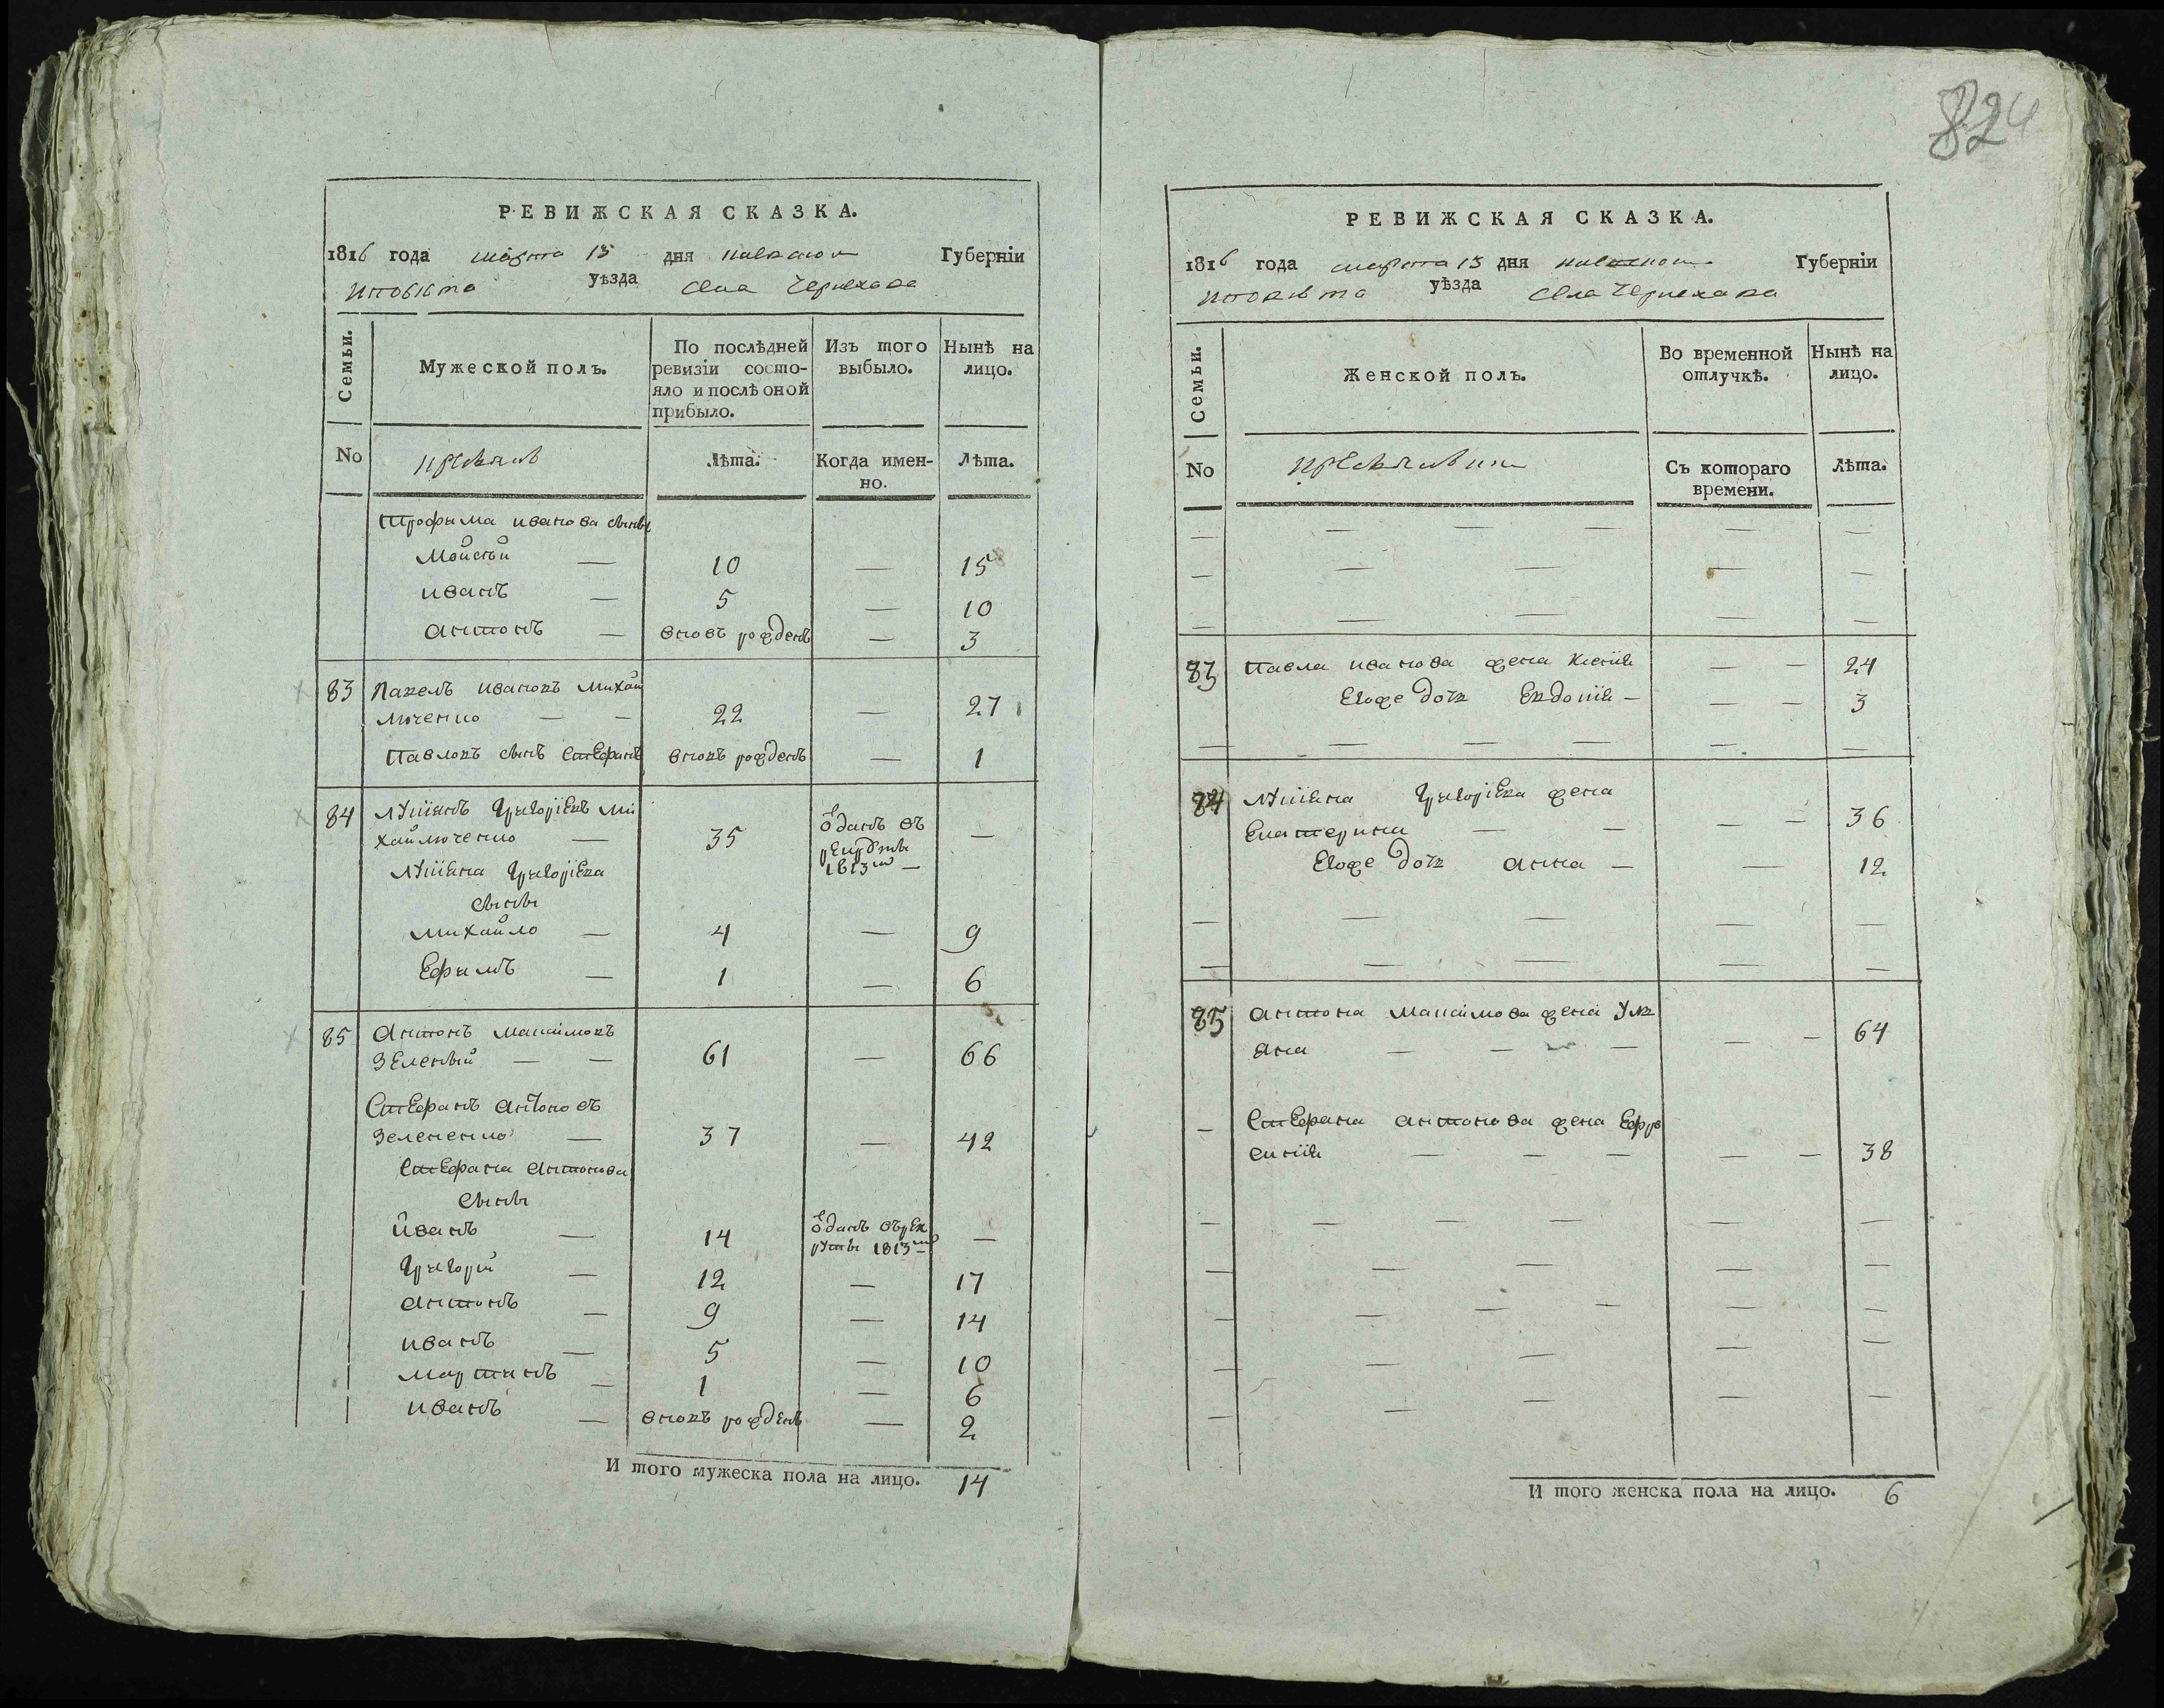 824
РЕВИЖСКАЯ СКАЗКА.
1816 года марта 13 дня киевской Губерніи
повѣта уѣзда села Черняхова
Семьи.
Мужеской полъ.
По послѣдней ревизіи состо-
яло и послѣ оной
прибыло.
Изъ того
выбыло.
Нынѣ на
лицо.
No
Лѣта.
Когда имен-
но.
Лѣта.
Трофыма иванова сыны
Мойсей — 10 — 15
иванъ — 5 — 10
антонъ — вновъ рожденъ — 3
83 Павелъ ивановъ михай
люченко — — 22 — 27
Павловъ сынъ Стефанъ вновъ рожденъ — 1
84 Лукіянъ Григоріевъ ми
хайлюченко — 35 ѿданъ въ рекруты 1813го — —
Лукіяна Григоріева
сыны
михайло — 4 — 9
Ефымъ — 1 — 6
85 Антонъ максимовъ
Зеленый — — 61 — 66
Стефанъ антоновъ
зелененко — 37 — 42
Стефана антонова
сыны
иванъ — 14 ѿданъ въ рек
руты 1813го —
Григорій — 12 — 17
антонъ — 9 — 14
иванъ — 5 — 10
мартинъ — 1 — 6
иванъ — вновъ рожденъ — 2
И того мужеска пола на лицо. 14
РЕВИЖСКАЯ СКАЗКА.
1816 года марта 13 дня киевской Губерніи
повѣта уѣзда села Черняхова
Семьи.
Женской полъ.
Во временной
отлучкѣ.
Нынѣ на
лицо.
No
Съ котораго
времени.
Лѣта.
83 Павла иванова жена Ксенія — — 24
Егоже дочь Евдокія — — — 3
84 Лукіяна Григоріева жена
Екатерина — — — — 36
Егоже дочь анна — — 12
85 антона максимова жена Уль
яна — — — — — 64
Стефана антонова жена Ефро
синія — — — — — 38
И того женска пола на лицо. 6